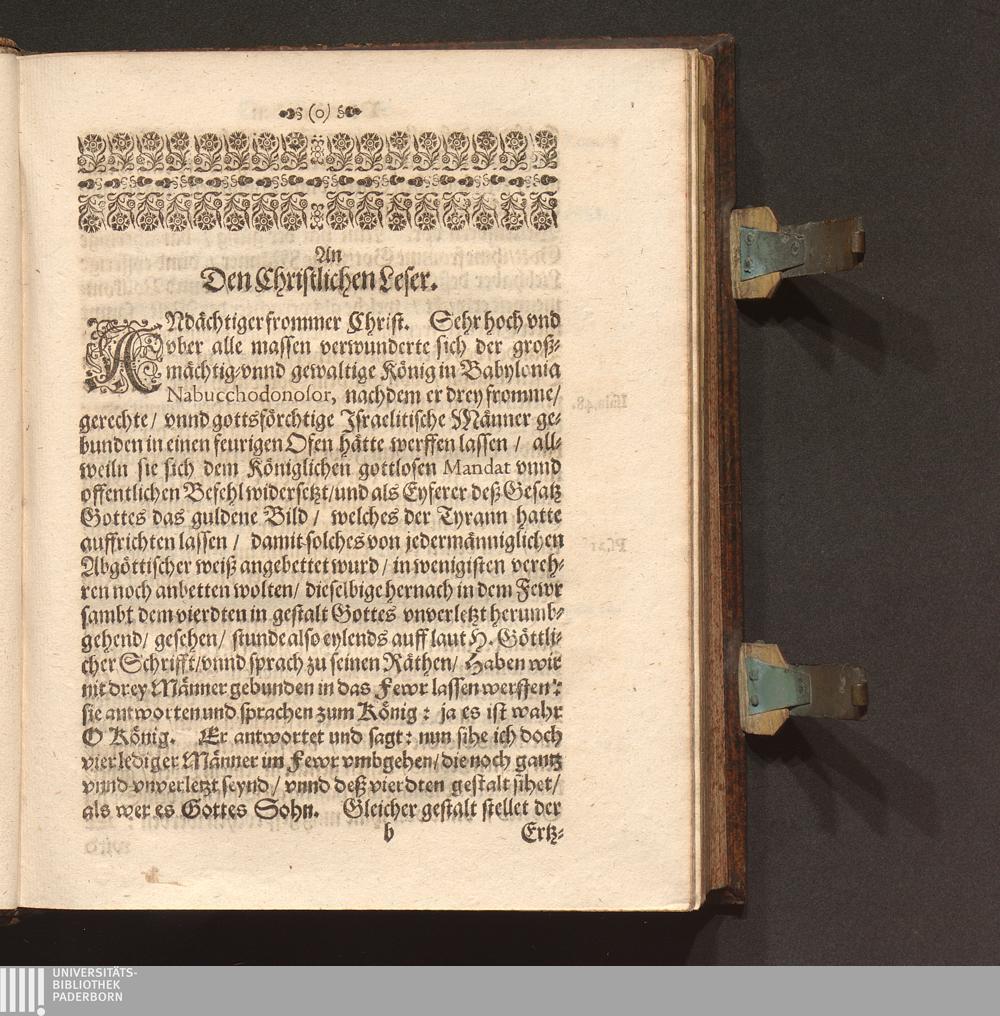 (o)
An
Den Christlichen Leser.
ANdächtiger frommer Christ. Sehr hoch vnd
vber alle massen verwunderte sich der groß-
mächtig/vnnd gewaltige König in Babylonia
Nabucchodonosor, nachdem er drey fromme/
gerechte/ vnnd gottsförchtige Israelitische Männer ge-
bunden in einen feurigen Ofen hätte werffen lassen / all-
weiln sie sich dem Königlichen gottlosen Mandat vnnd
offentlichen Befehl widersetzt/und als Eyferer deß Gesatz
Gottes das guldene Bild / welches der Tyrann hatte
auffrichten lassen / damit solches von jedermänniglichen
Abgöttischer weiß angebettet wurd / in wenigisten vereh-
ren noch anbetten wolten/ dieselbige hernach in dem Fewr
sambt dem vierdten in gestalt Gottes vnverletzt herumb-
gehend/ gesehen/ stunde also eylends auff laut H. Göttli-
cher Schrifft/vnnd sprach zu seinen Räthen/ Haben wir
nit drey Männer gebunden in das Fewr lassen werffen?
sie antworten und sprachen zum König: ja es ist wahr
O König. Er antwortet und sagt: nun sihe ich doch
vier lediger Männer im Fewr vmbgehen/ die noch gantz
vnnd vnverletzt seynd / vnnd deß vierdten gestalt sihet/
als wer es Gottes Sohn. Gleicher gestalt stellet der
b Ertz-
UNIVERSITÄTS-
BIBLIOTHEK
PADERBORN